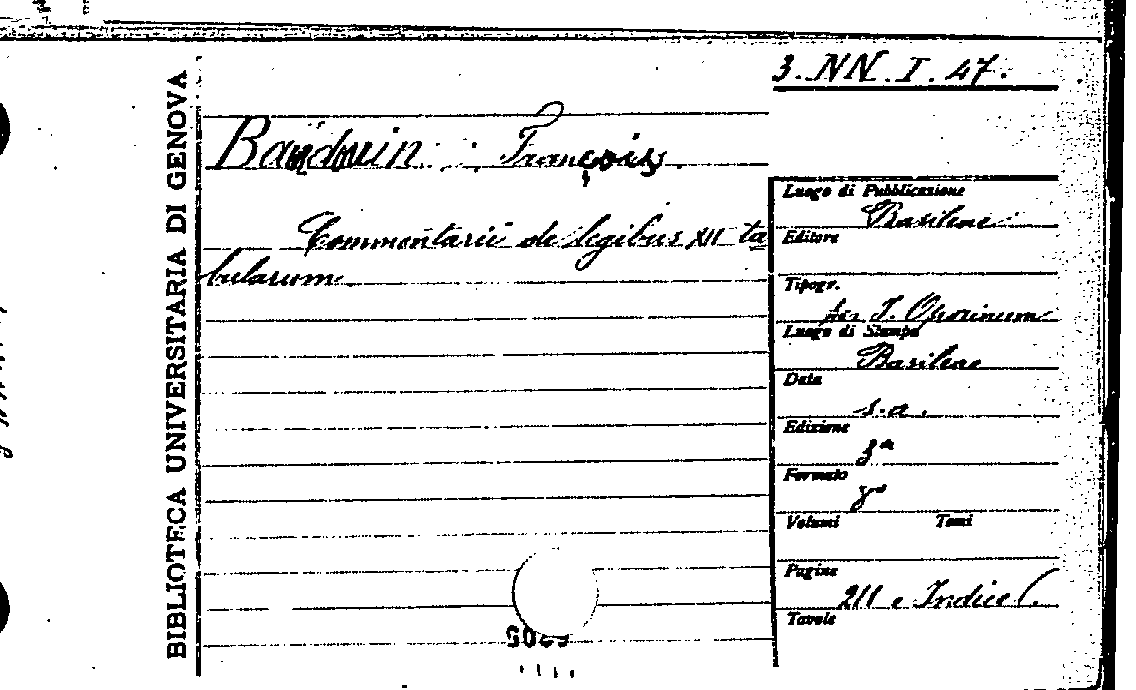 3. NN. I. 47.
BIBLIOTECA UNIVERSITARIA DI GENOVA
Bauduin François.
Commentarii de legibus XII ta
bularum
Luogo di Pubblicazione
Basileae
Editore
Tipogr.
per J. Oporinum
Luogo di Stampa
Basileae
Data
s.a.
Edizione
3ª
Formato
8°
Volumi Tomi
Pagine
211 e Indice
Tavole